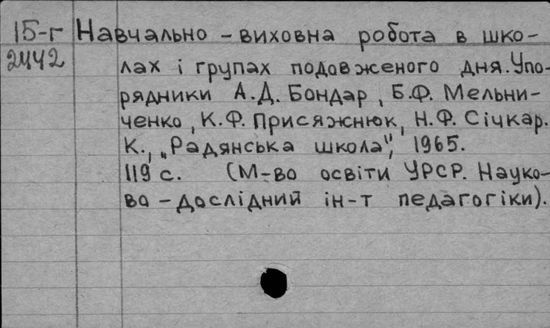 15-г Навчально-виховна робота в шко-
2442 лах і групах подовженого дня. Упо-
рядники А.Д. Бондар, Б.Ф. Мельни-
ченко, К.Ф. Присяжнюк, Н.Ф. Січкар.
К., „Радянська школа", 1965.
119 с. (М-во освіти УРСР. Науко-
во-дослідний ін-т педагогіки).